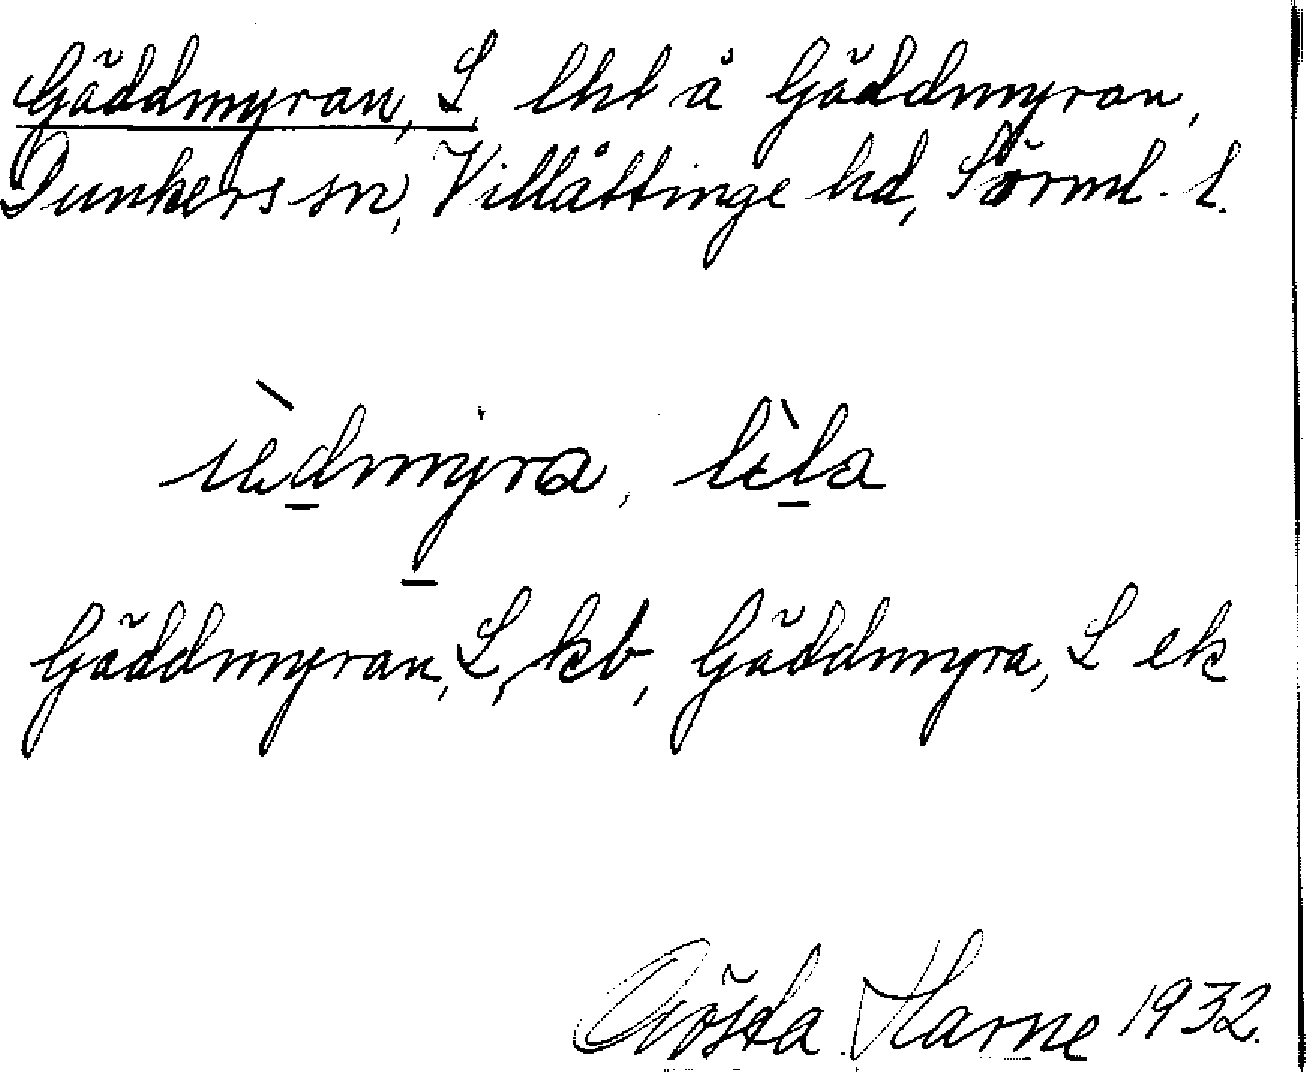 Gäddmyran, L lht å Gäddmyran,
Dunkers sn, Villåttinge hd, Sörml. l.
lı̀la
Gäddmyran, L, kb, Gäddmyra, L ek
Gösta Harne 1932.